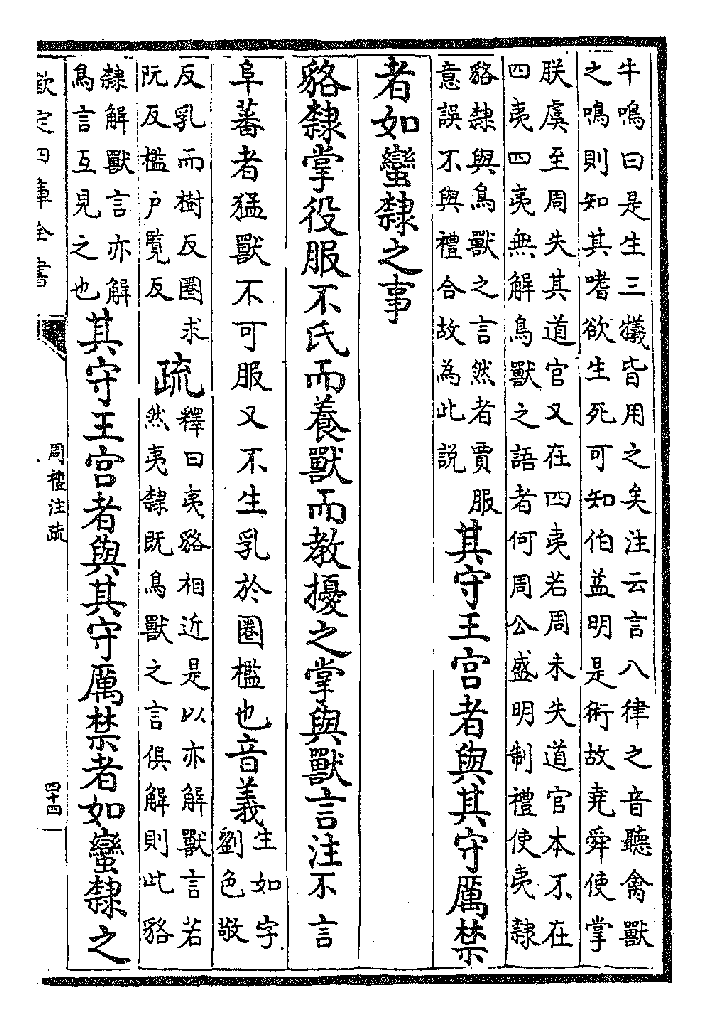 牛鳴曰是生三犧皆用之矣注云言八律之音聽禽獸
之鳴則知其嗜欲生死可知伯益明是術故堯舜使掌
朕虞至周失其道官又在四夷若周未失道官本不在
四夷四夷無解鳥獸之語者何周公盛明制禮使夷隸
貉隸與鳥獸之言然者賈服
意誤不與禮合故為此説
其守王宫者與其守厲禁
者如蠻隸之事
貉隸掌役服不氏而養獸而教擾之掌與獸言注不言
阜蕃者猛獸不可服又不生乳於圈檻也音義
生如字
劉色敬
反乳而樹反圈求
阮反檻户覧反
疏
釋曰夷貉相近是以亦解獸言若
然夷隸既鳥獸之言俱解則此貉
隸解獸言亦解
鳥言互見之也
其守王宫者與其守厲禁者如蠻隸之
欽定四庫全書
周禮注疏
四十四